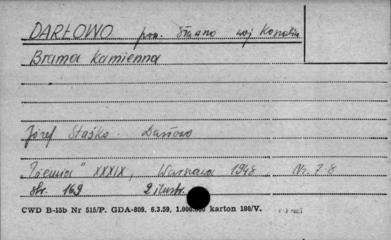 DARŁOWO pow. Sławno woj Koszalin
Brama Kamienna
Józef Staśko. Darłowo
"Ziemia" XXXIX, Warszawa 1948 Nr. 7-8
str. 169 2 ilustr.
CWD B-15b Nr 515/P. GDA-809. 6.3.59, 1.000.000 karton 180/V.